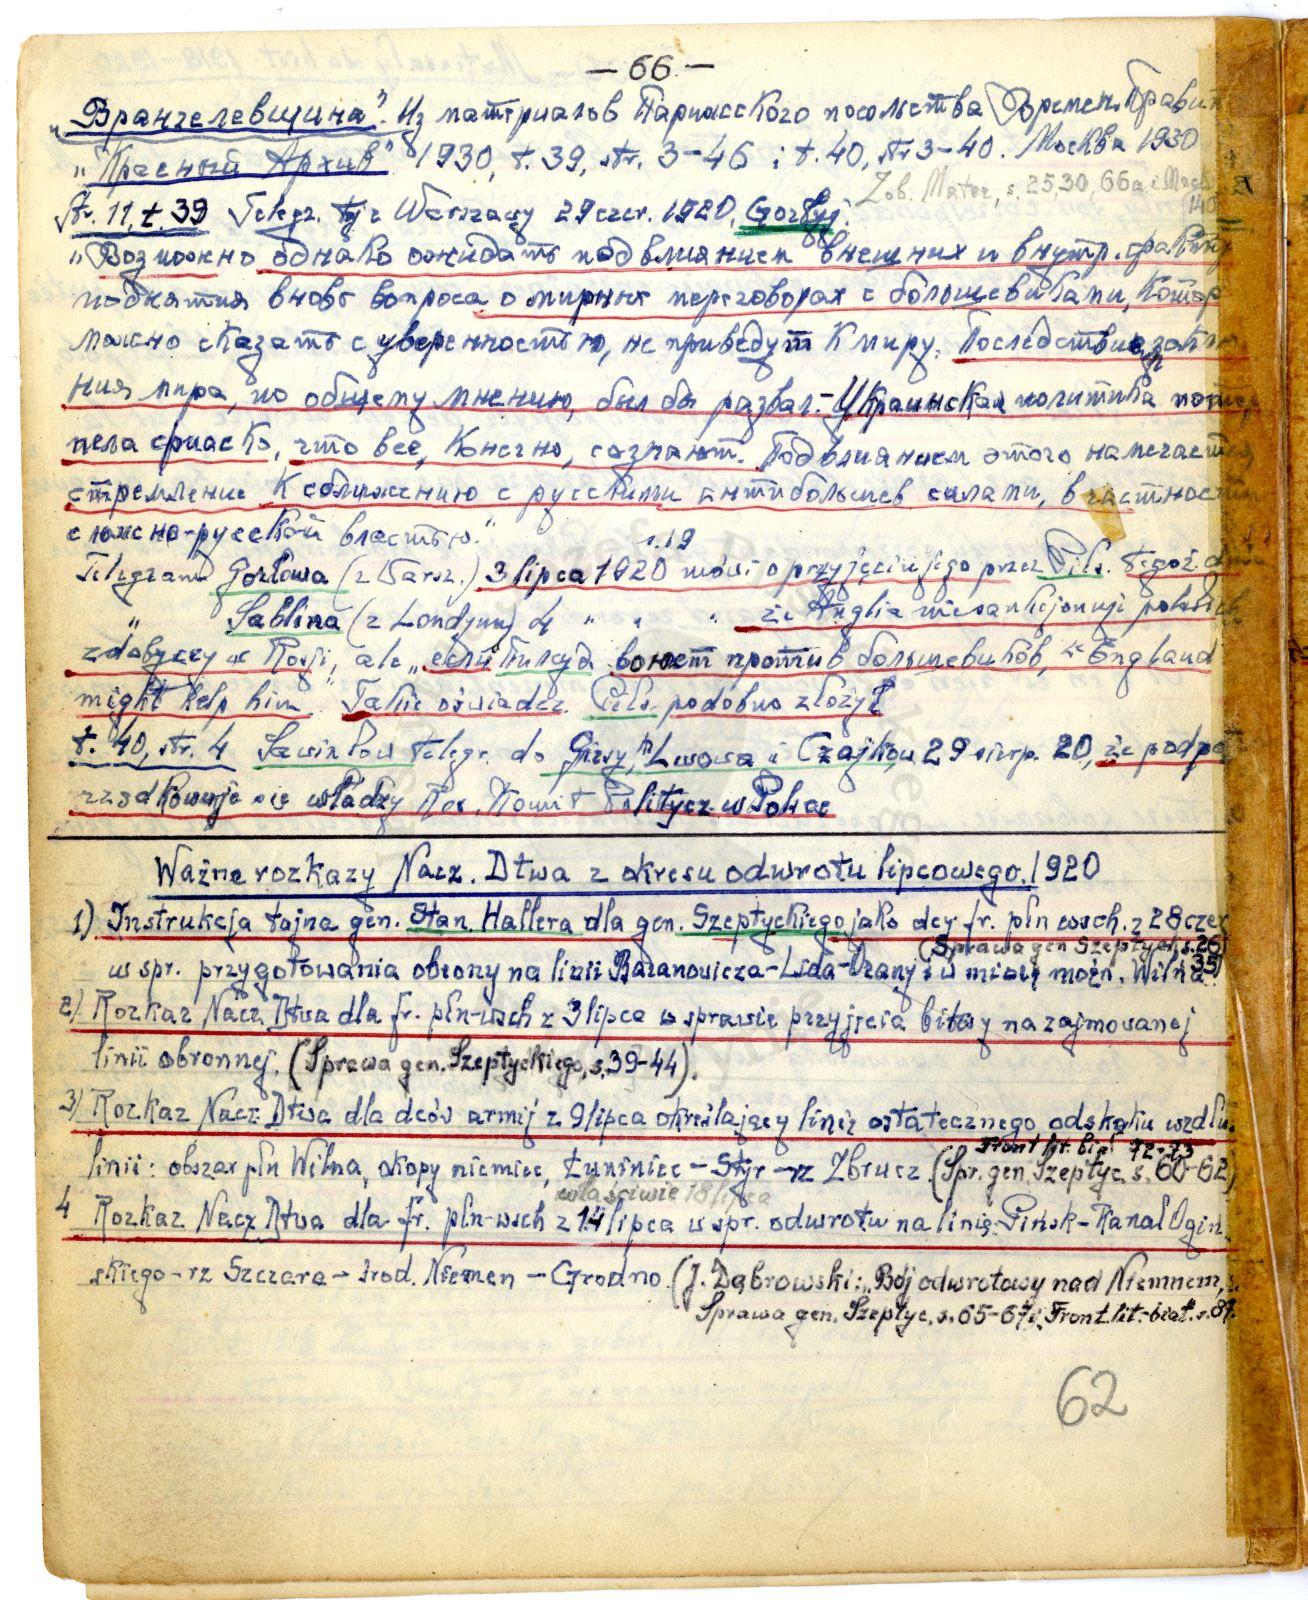 — 66 —
"Врангелевщина". Из материалов Парижского посольства Времен. Правит
"Красный Архив" 1930, t. 39, str. 3-46 i t. 40, str 3-40. Москва 1930
Zob. Mater., s. 25,30, 66a i
140
Str. 11, t. 39 Telegr. z Warszawy 29 czer. 1920,
"Возможно однако ожидать под влиянием внешних и внутр.
поднятия вновь вопроса о мирных переговорах с большевиками, котор
можно сказать с уверенностью, не приведут к миру. Последствием заклю
ния мира, по общему мнению, был бы развал. - Украинская политика потер
пела фиаско, что все, конечно, сознают. Под влиянием этого намечается
стремление к сближению с русскими антибольшев силами, в частности
с южно-русской властью."
s. 19
Telegram Gorłowa (z Warsz.) 3 lipca 1920 mówi o przyjęciu jego przez Piłs. tegoż dnia
" Sablina (z Londynu) 4 " " " że Anglia nie sankcjonuje polskich
zdobyczy w Rosji, ale "если Пилсуд воюет против большевиков, England
might help him" Takie oświadcz. Piłs. podobno złożył
t. 40, str. 4 Sawinkow telegr. do Girsy, Lwowa i Czajkow 29 sierp. 20, że podpo
rządkowuje się władzy Ros. Komit Politycz. w Polsce
Ważne rozkazy Nacz. Dtwa z okresu odwrotu lipcowego, 1920
1) Instrukcja tajna gen. Stan. Hallera dla gen. Szeptyckiego jako dcy fr. płn wsch. z 28 czer
(Sprawa gen Szeptyc, s. 26
w spr. przygotowania obrony na linii Baranowicze-Lida-Orany i w miarę możn. Wilna 35)
2) Rozkaz Nacz Dtwa dla fr. płn-wsch z 3 lipca w sprawie przyjęcia bitwy na zajmowanej
linii obronnej. (Sprawa gen. Szeptyckiego, s. 39-44).
3) Rozkaz Nacz Dtwa dla dców armij z 9 lipca określający linię ostatecznego odskoku wzdłu
Front 72-73
linii: obszar płn Wilna, okopy niemiec, Łuniniec - Styr - rz Zbrucz (Spr. gen. Szeptyc. s. 60-62)
właściwie 18 lipca
4 Rozkaz Nacz Dtwa dla fr. płn-wsch z 14 lipca w spr. odwrotu na linię: Pińsk - Kanał Ogiń
skiego - rz Szczara - środ. Niemen - Grodno. (J. Dąbrowski: "Bój odwrotowy nad Niemnem, s.
Sprawa gen. Szeptyc. s. 65-67; Front lit.-biał. s. 87.
62